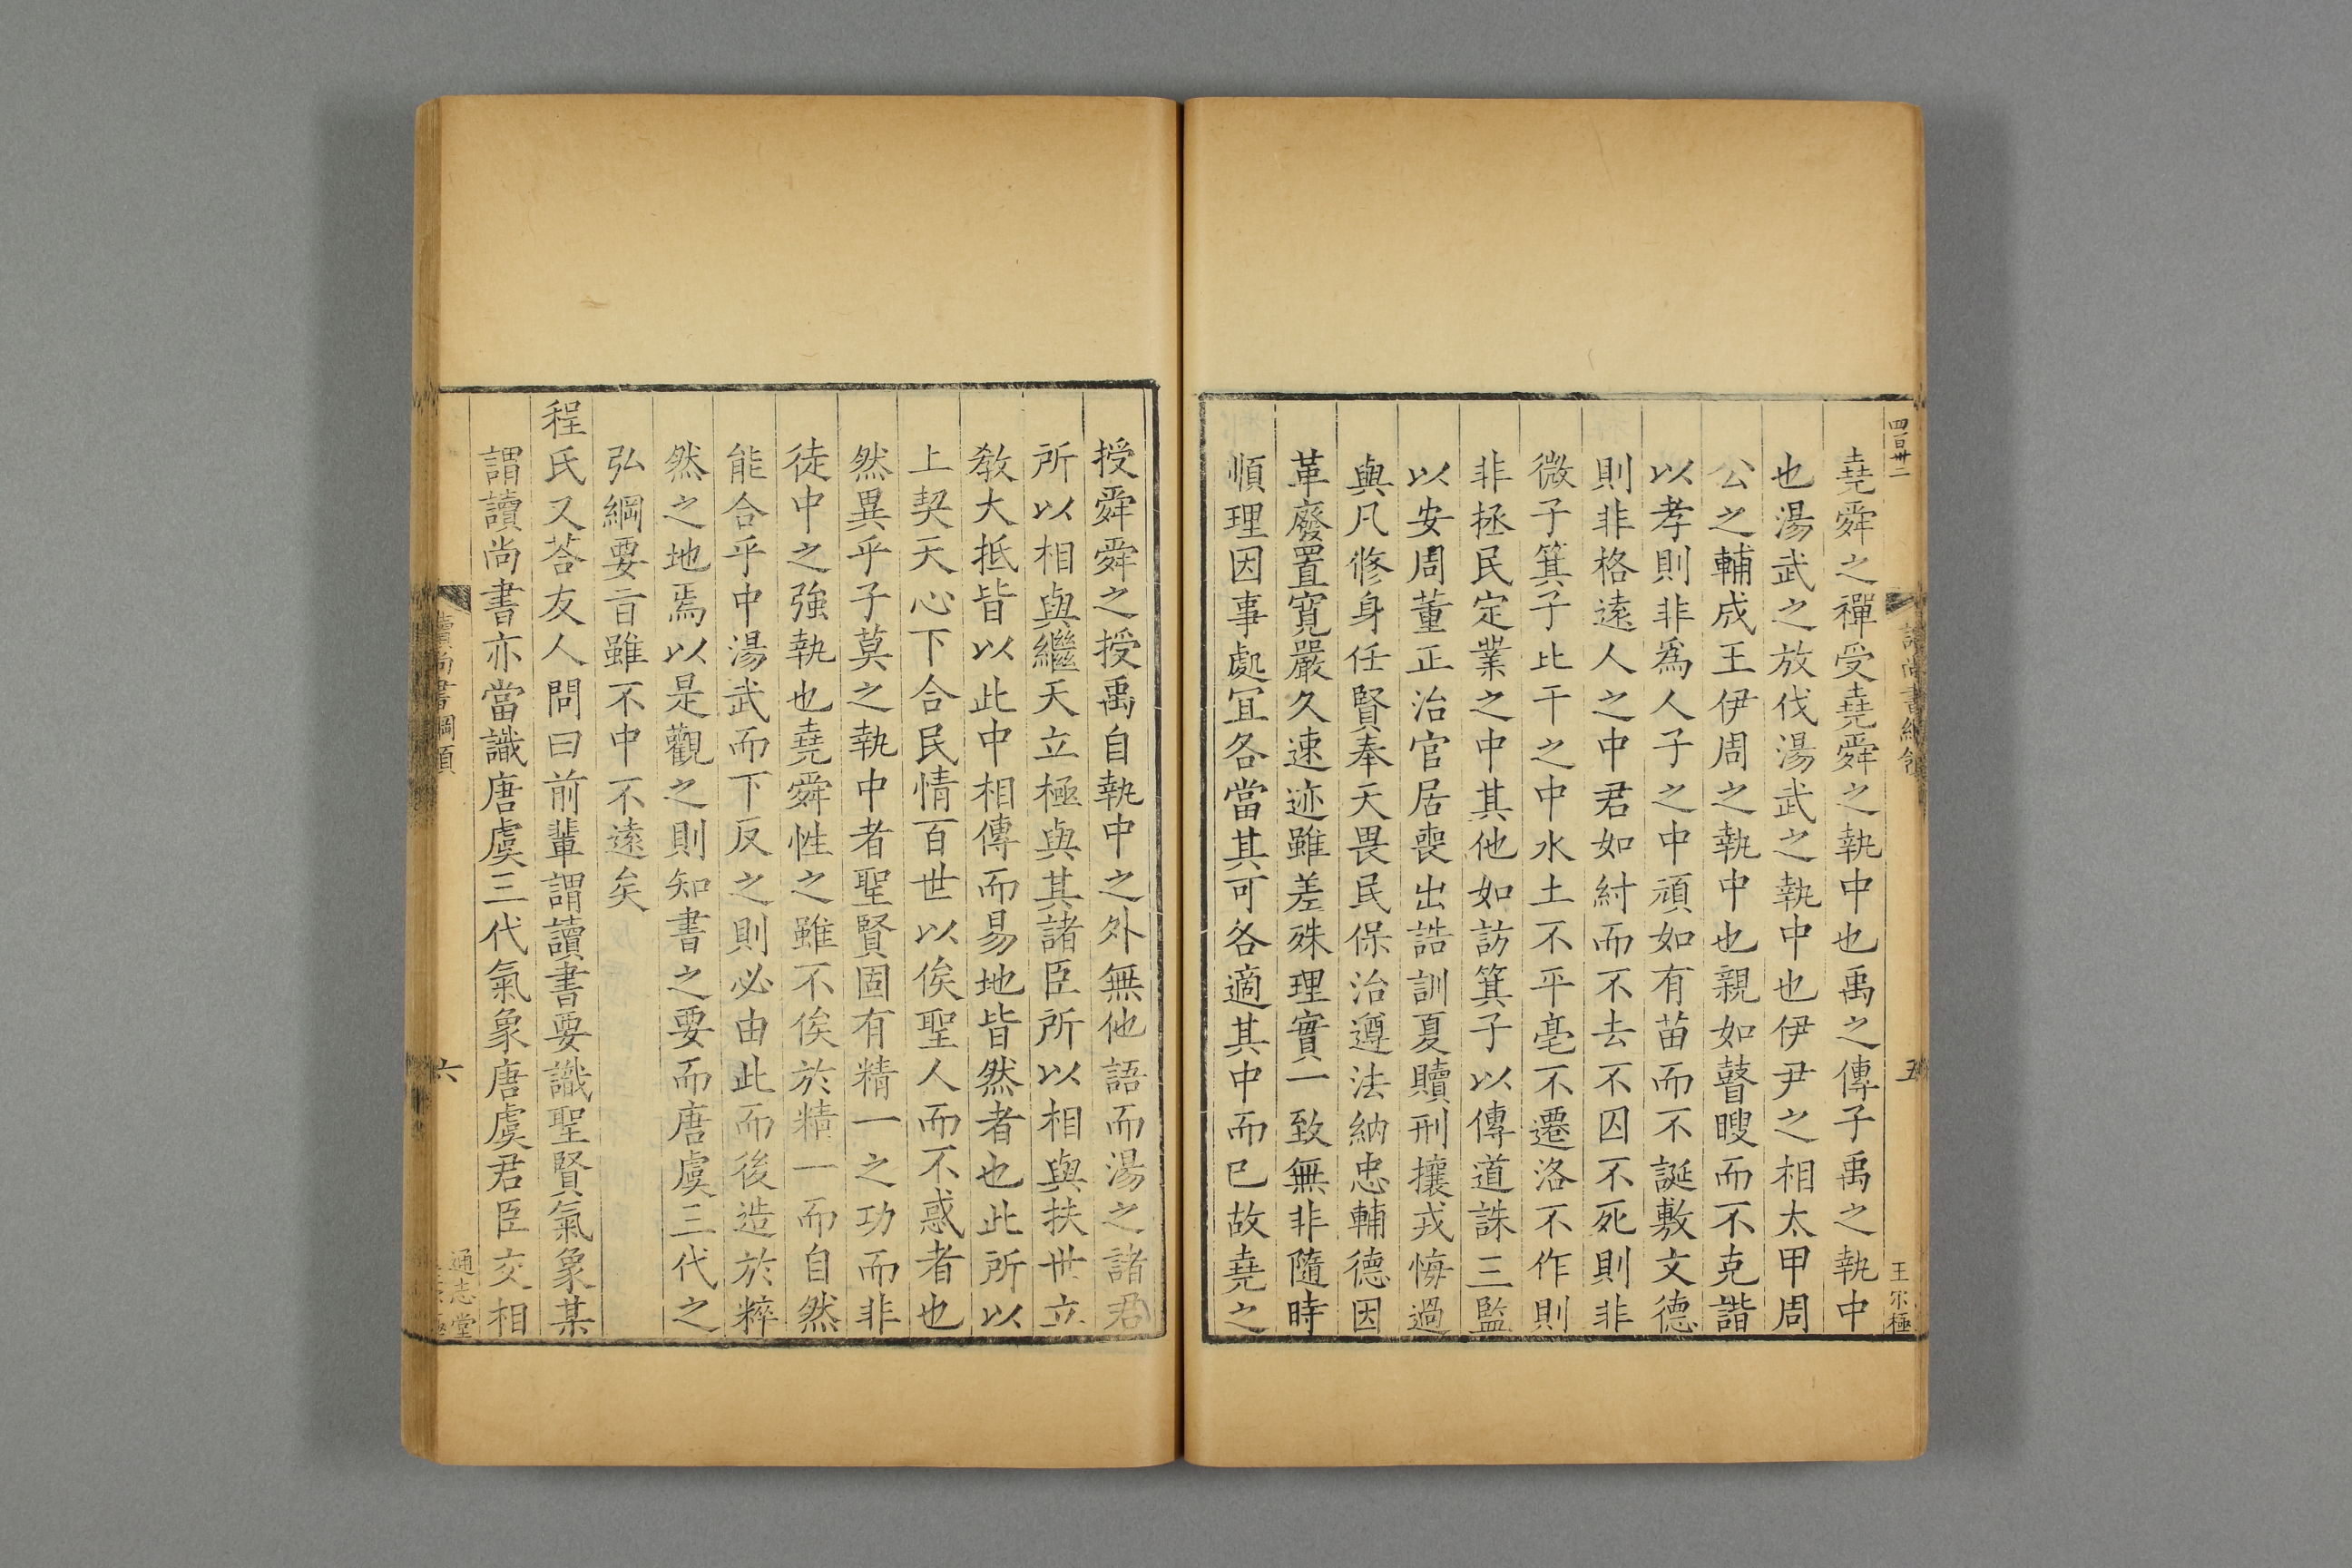 四百卅二
讀尚書綱領
五
王尔極
堯舜之禪受堯舜之執中也禹之傳子禹之執中
也湯武之放伐湯武之執中也伊尹之相太甲周
公之輔成王伊周之執中也親如瞽瞍而不克諧
以孝則非爲人子之中頑如有苗而不誕敷文德
則非格遠人之中君如紂而不去不囚不死則非
微子箕子比干之中水土不平亳不遷洛不作則
非拯民定業之中其他如訪箕子以傳道誅三監
以安周董正治官居喪出誥訓夏贖刑攘戎悔過
與凡修身任賢奉天畏民保治遵法納忠輔德因
革廢置寬嚴久速迹雖差殊理實一致無非隨時
順理因事處宜各當其可各適其中而已故堯之
授舜舜之授禹自執中之外無他語而湯之諸君
所以相與繼天立極與其諸臣所以相與扶世立
教大抵皆以此中相傳而易地皆然者也此所以
上契天心下合民情百世以俟聖人而不惑者也
然異乎子莫之執中者聖賢固有精一之功而非
徒中之強執也堯舜性之雖不俟於精一而自然
能合乎中湯武而下反之則必由此而後造於粹
然之地焉以是觀之則知書之要而唐虞三代之
弘綱要旨雖不中不遠矣
程氏又荅友人問曰前輩謂讀書要識聖賢氣象某
謂讀尚書亦當識唐虞三代氣象唐虞君臣交相
讀尚書綱領
六
通志堂